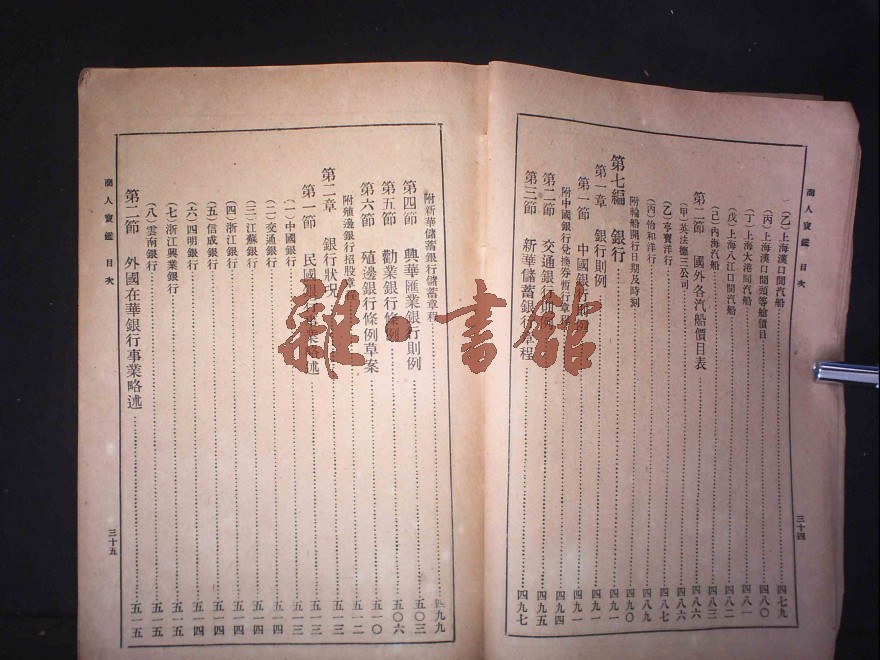 商人寶鑑 目次
三十四
(乙)上海漢口間汽船 四七九
(丙)上海漢口間頭等艙價目 四八〇
(丁)上海大港間汽船 四八一
(戊)上海八江口間汽船 四八二
(己)內海汽船 四八三
第二節 國外各汽船價目表 四八六
(甲)英法德三公司 四八六
(乙)亨寶洋行 四八七
(丙)怡和洋行 四八九
附輪船開行日期及時刻 四九〇
第七編 銀行 四九一
第一章 銀行則例 四九一
第一節 中國銀行則例 四九一
附中國銀行兌換券暫行章程 四九四
第二節 交通銀行則例 四九五
第三節 新華儲蓄銀行章程 四九七
附新華儲蓄銀行儲蓄章程 四九九
第四節 興華匯業銀行則例 五〇三
第五節 勸業銀行條例 五〇六
第六節 殖邊銀行條例草案 五一〇
附殖邊銀行招股章程 五一二
第二章 銀行狀況 五一三
第一節 民國 業略述 五一三
(一)中國銀行 五一三
(二)交通銀行 五一四
(三)江蘇銀行 五一四
(四)浙江銀行 五一四
(五)信成銀行 五一四
(六)四明銀行 五一四
(七)浙江興業銀行 五一五
(八)雲南銀行 五一五
第二節 外國在華銀行事業略述 五一五
商人寶鑑 目次
三十五
雜書館